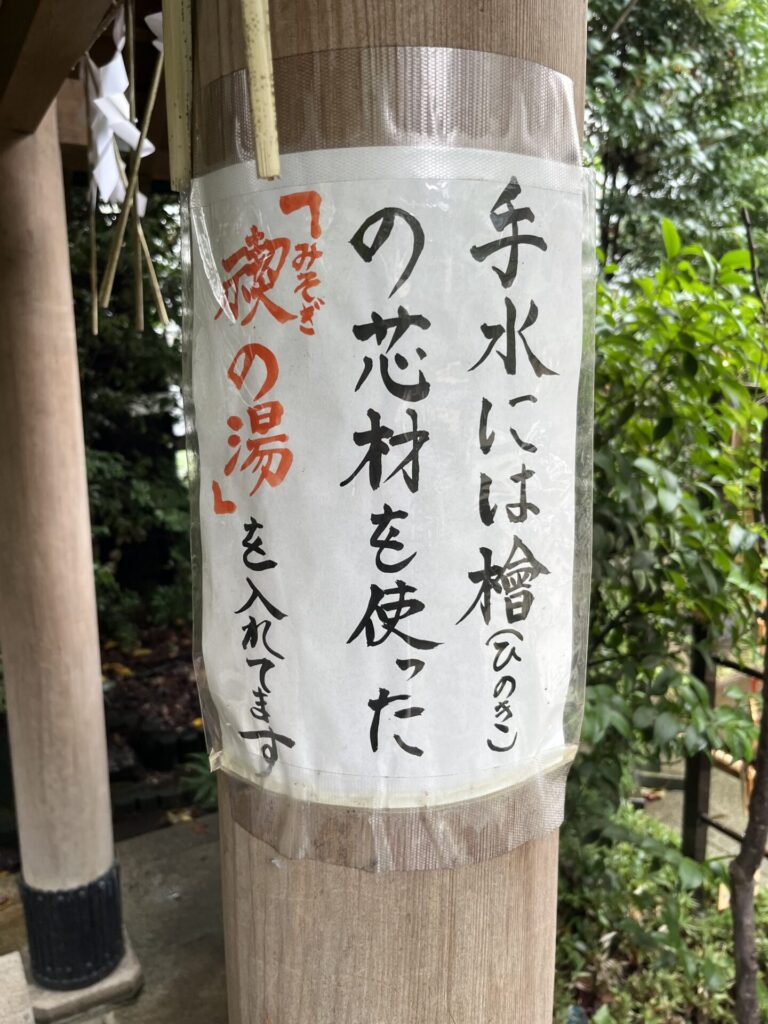 手水には檜(ひのき)
の芯材を使った
「禊みそぎの湯」を入れてます